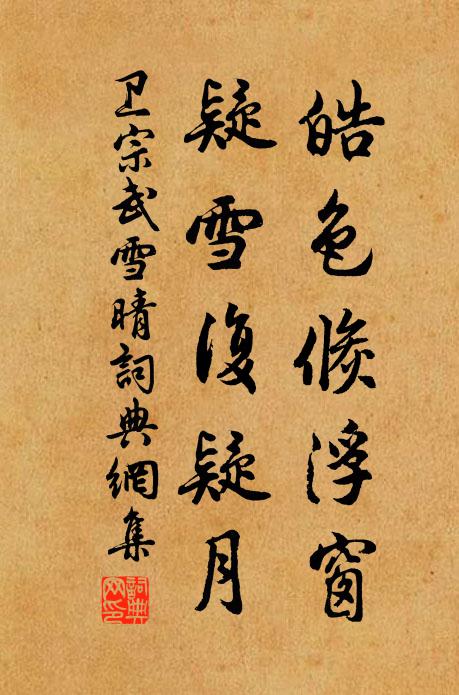 皓色倏浮窗
疑雪復疑月
卫宗武雪晴詞典網集
詞典网印